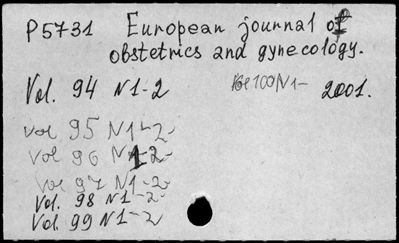 P5731 European journal of
obstetrics and gynecology.
Vol. 94 N1-2 Vol 100 N1- 2001.
vol 95 N1-2
vol 96 N1-2
vol 97 N1-2
Vol. 98 N1-2
Vol. 99 N1-2